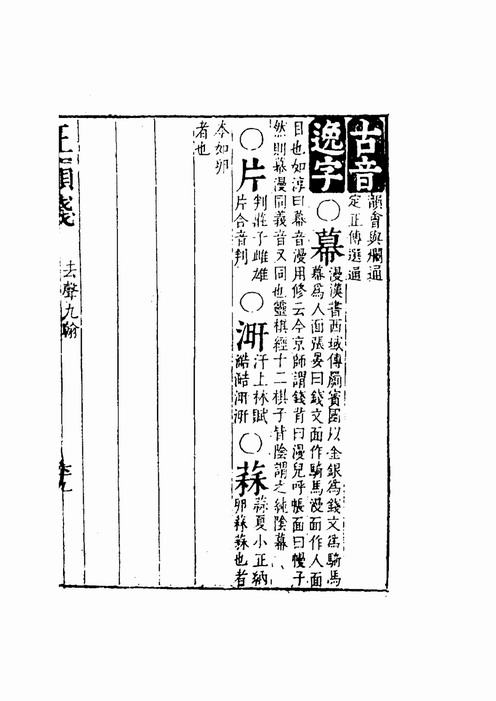 古音
韻會與爛通
定正傳選通
逸字
○幕
漫漢書西域傳罽賓國以金銀爲錢文爲騎馬
幕爲人面張晏曰錢文面作騎馬漫面作人面
目也如淳曰幕音漫用修云今京師謂錢背曰漫兒呼帳面曰幔子
然則幕漫同義音又同也靈棋經十二棋子皆陰謂之純陰幕
○片
判莊子雌雄
片合音判
○汧
汗上林賦
酷酷汧汧
○蒜
蒜夏小正納
卵蒜蒜也者
夲如卵
者也
去聲九翰